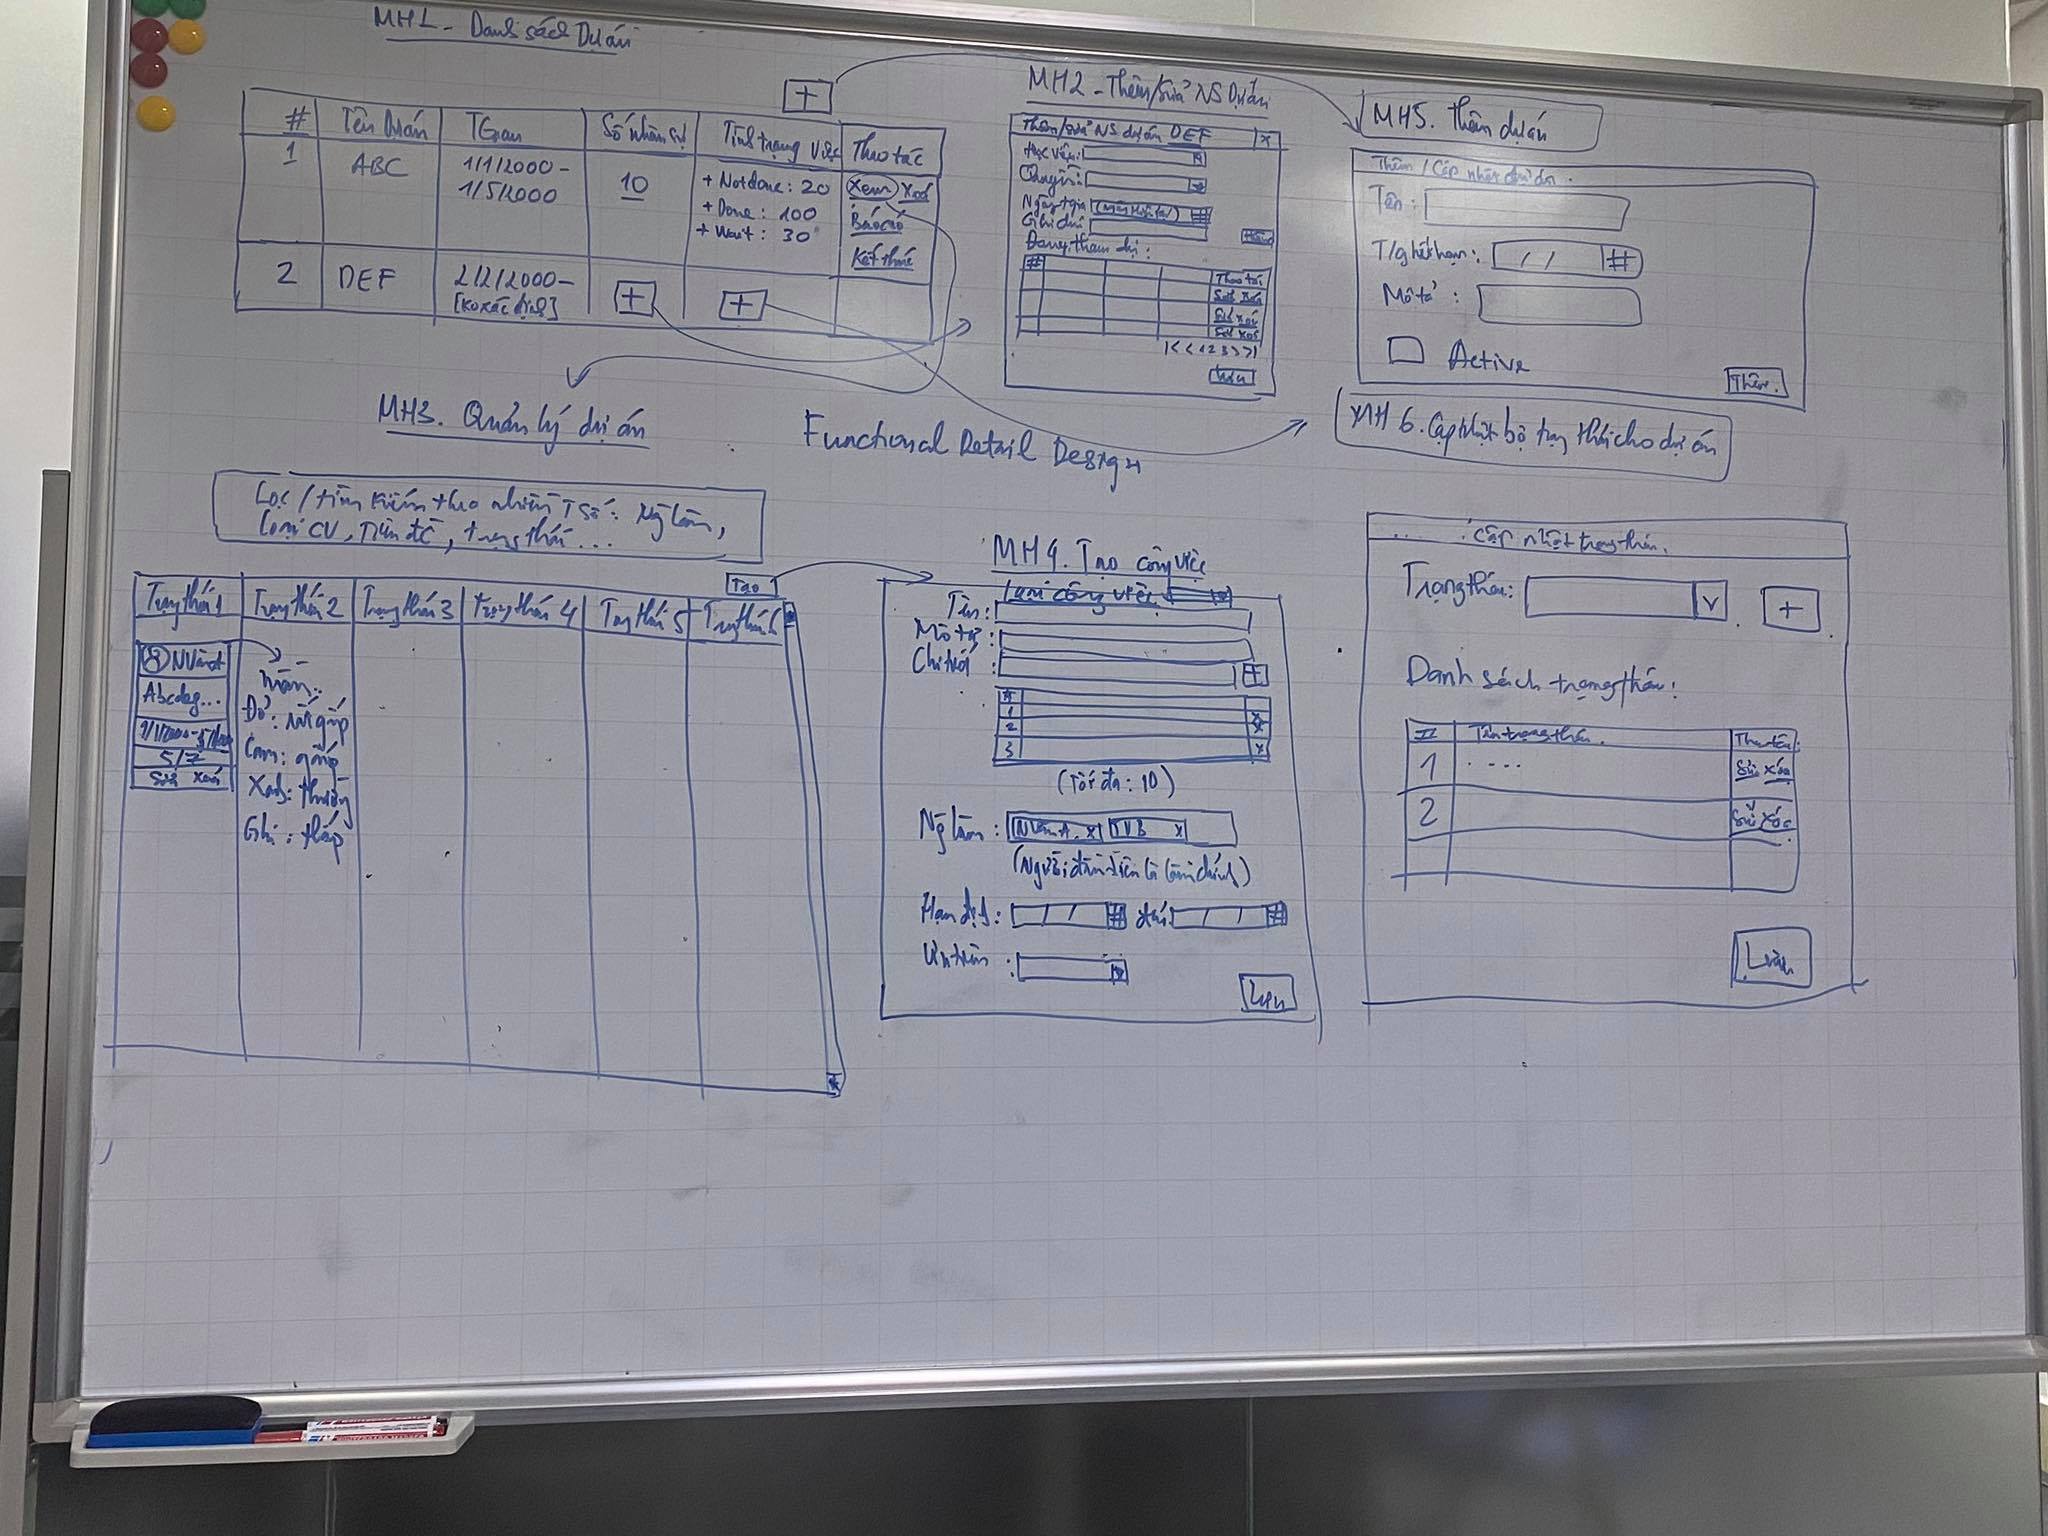 MH1 - Danh sách Dự án
+
# Tên Dự án TGian Số nhân sự Tình trạng Việc Thao tác
1 ABC 1/1/2000 - 10 + Notdone: 20 Xem Xoá
1/5/2000 + Done: 100 Báo cáo
+ Wait: 30 Kết thúc
2 DEF 2/2/2000 - + +
[Ko xác định]
MH2 - Thêm/sửa NS Dự án
Thêm/sửa NS dự án DEF x
Ngày tgia
Ghi chú
Đang tham dự:
# Thao tác
Sửa Xoá
Sửa Xoá
Sửa Xoá
|< < 1 2 3 > >|
Lưu
MH5. Thêm dự án
Thêm / Cập nhật dự án.
Tên:
T/g hết hạn: / / #
Mô tả:
Active
Thêm.
MH3. Quản lý dự án
Functional Detail Design
MH 6. Cập nhật bộ trạng thái cho dự án
Lọc / tìm kiếm theo nhiều T Số: Ng làm,
loại CV, Tiêu đề, trạng thái...
Tạo
Trạng thái 1 Trạng thái 2 Trạng thái 3 Trạng thái 4 Trạng thái 5 Trạng thái 6
Abcdeg...
5/7
Sửa Xoá
Đỏ: rất gấp
Cam: gấp
Xanh: thường
Ghi: thấp
MH4. Tạo công việc
Loại công việc
Tên:
Mô tả:
Chi tiết: +
#
1
2 x
3 x
(Tối đa: 10)
Ng làm: NVăn A. x TVB x
(Người đầu tiên là làm chính)
Hạn định: / / # đến / / #
Ưu tiên:
Lưu
... : cập nhật trạng thái.
Trạng thái: v +
Danh sách trạng thái:
# Tên trạng thái. Thao tác
1 .... Sửa xóa
2 Sửa xóa
Lưu